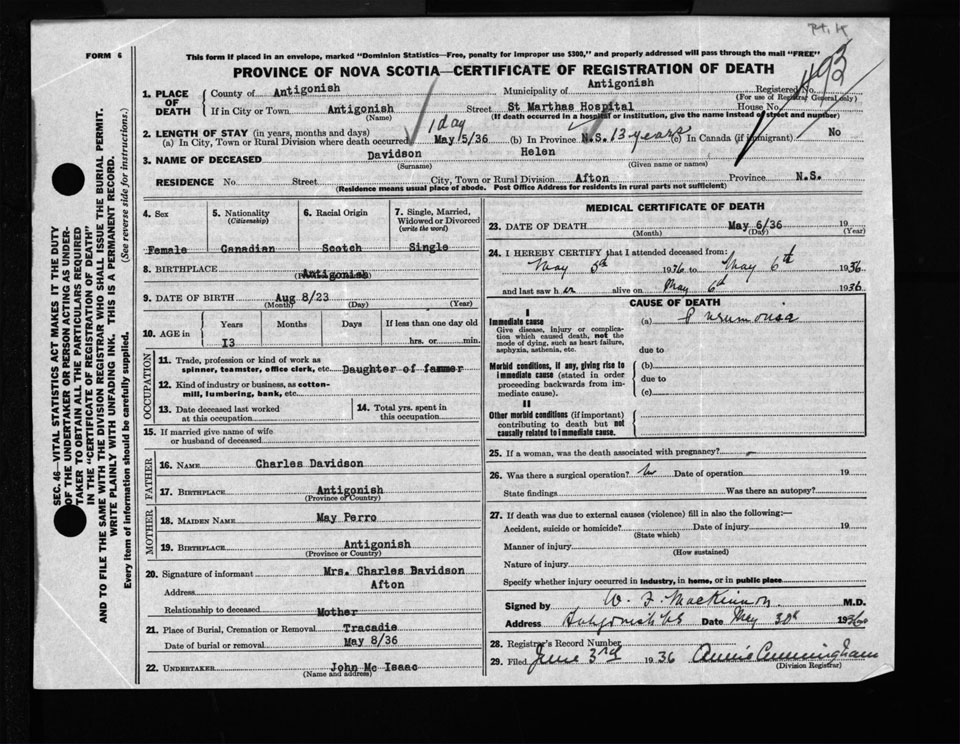 FORM 6
This form if placed in an envelope, marked "Dominion Statistics—Free, penalty for improper use $300," and properly addressed will pass through the mail "FREE"
PROVINCE OF NOVA SCOTIA—CERTIFICATE OF REGISTRATION OF DEATH
1. PLACE OF DEATH
County of Antigonish Municipality of Antigonish Registered No.
(For use of Registrar General only)
If in City or Town Antigonish Street St Marthas Hospital House No.
(Name) (If death occurred in a hospital or institution, give the name instead of street and number)
2. LENGTH OF STAY (in years, months and days) 1 day
(a) In City, Town or Rural Division where death occurred May 5/36 (b) In Province N.S. 13 years (c) In Canada (if immigrant) No
3. NAME OF DECEASED Davidson Helen
(Surname) (Given name or names)
RESIDENCE No Street City, Town or Rural Division Afton Province N.S.
(Residence means usual place of abode. Post Office Address for residents in rural parts not sufficient)
SEC. 46—VITAL STATISTICS ACT MAKES IT THE DUTY
OF THE UNDERTAKER OR PERSON ACTING AS UNDER-
TAKER TO OBTAIN ALL THE PARTICULARS REQUIRED
IN THE "CERTIFICATE OF REGISTRATION OF DEATH"
AND TO FILE THE SAME WITH THE DIVISION REGISTRAR WHO SHALL ISSUE THE BURIAL PERMIT.
WRITE PLAINLY WITH UNFADING INK. THIS IS A PERMANENT RECORD.
Every item of information should be carefully supplied. (See reverse side for instructions.)
4. Sex
Female
5. Nationality
(Citizenship)
Canadian
6. Racial Origin
Scotch
7. Single, Married,
Widowed or Divorced
(write the word)
Single
8. BIRTHPLACE Antigonish
9. DATE OF BIRTH Aug 8/23
(Month) (Day) (Year)
10. AGE in
Years Months Days If less than one day old
I3 hrs. or min.
OCCUPATION
11. Trade, profession or kind of work as
spinner, teamster, office clerk, etc. Daughter of fammer
12. Kind of industry or business, as cotton-
mill, lumbering, bank, etc.
13. Date deceased last worked
at this occupation
14. Total yrs. spent in
this occupation
15. If married give name of wife
or husband of deceased
FATHER
16. NAME Charles Davidson
17. BIRTHPLACE Antigonish
(Province or Country)
MOTHER
18. MAIDEN NAME May Perro
19. BIRTHPLACE Antigonish
(Province or Country)
20. Signature of informant Mrs. Charles Davidson
Address Afton
Relationship to deceased Mother
21. Place of Burial, Cremation or Removal Tracadie
Date of burial or removal May 8/36
22. UNDERTAKER John Mc Isaac
(Name and address)
MEDICAL CERTIFICATE OF DEATH
23. DATE OF DEATH May 6/36 19
(Month) (Day) (Year)
24. I HEREBY CERTIFY that I attended deceased from:
May 5th 1936 to May 6th 1936
and last saw her alive on May 6th 1936
CAUSE OF DEATH
I
Immediate cause
Give disease, injury or complica-
tion which caused death, not the
mode of dying, such as heart failure,
asphyxia, asthenia, etc.
(a)
due to
Morbid conditions, if any, giving rise to
immediate cause (stated in order
proceeding backwards from im-
mediate cause).
(b)
due to
(c)
II
Other morbid conditions (if important)
contributing to death but not
causally related to immediate cause.
25. If a woman, was the death associated with pregnancy?
26. Was there a surgical operation? Date of operation 19
State findings Was there an autopsy?
27. If death was due to external causes (violence) fill in also the following:—
Accident, suicide or homicide? Date of injury 19
(State which)
Manner of injury
(How sustained)
Nature of injury
Specify whether injury occurred in industry, in home, or in public place
Signed by W. F. MacKinnon M.D.
Address Antigonish NS Date May 30th 1936
28. Registrar's Record Number
29. Filed June 3rd 1936 Annie Cunningham
(Division Registrar)